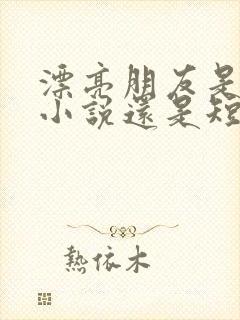 漂亮朋友是
小說還是短
熱依木